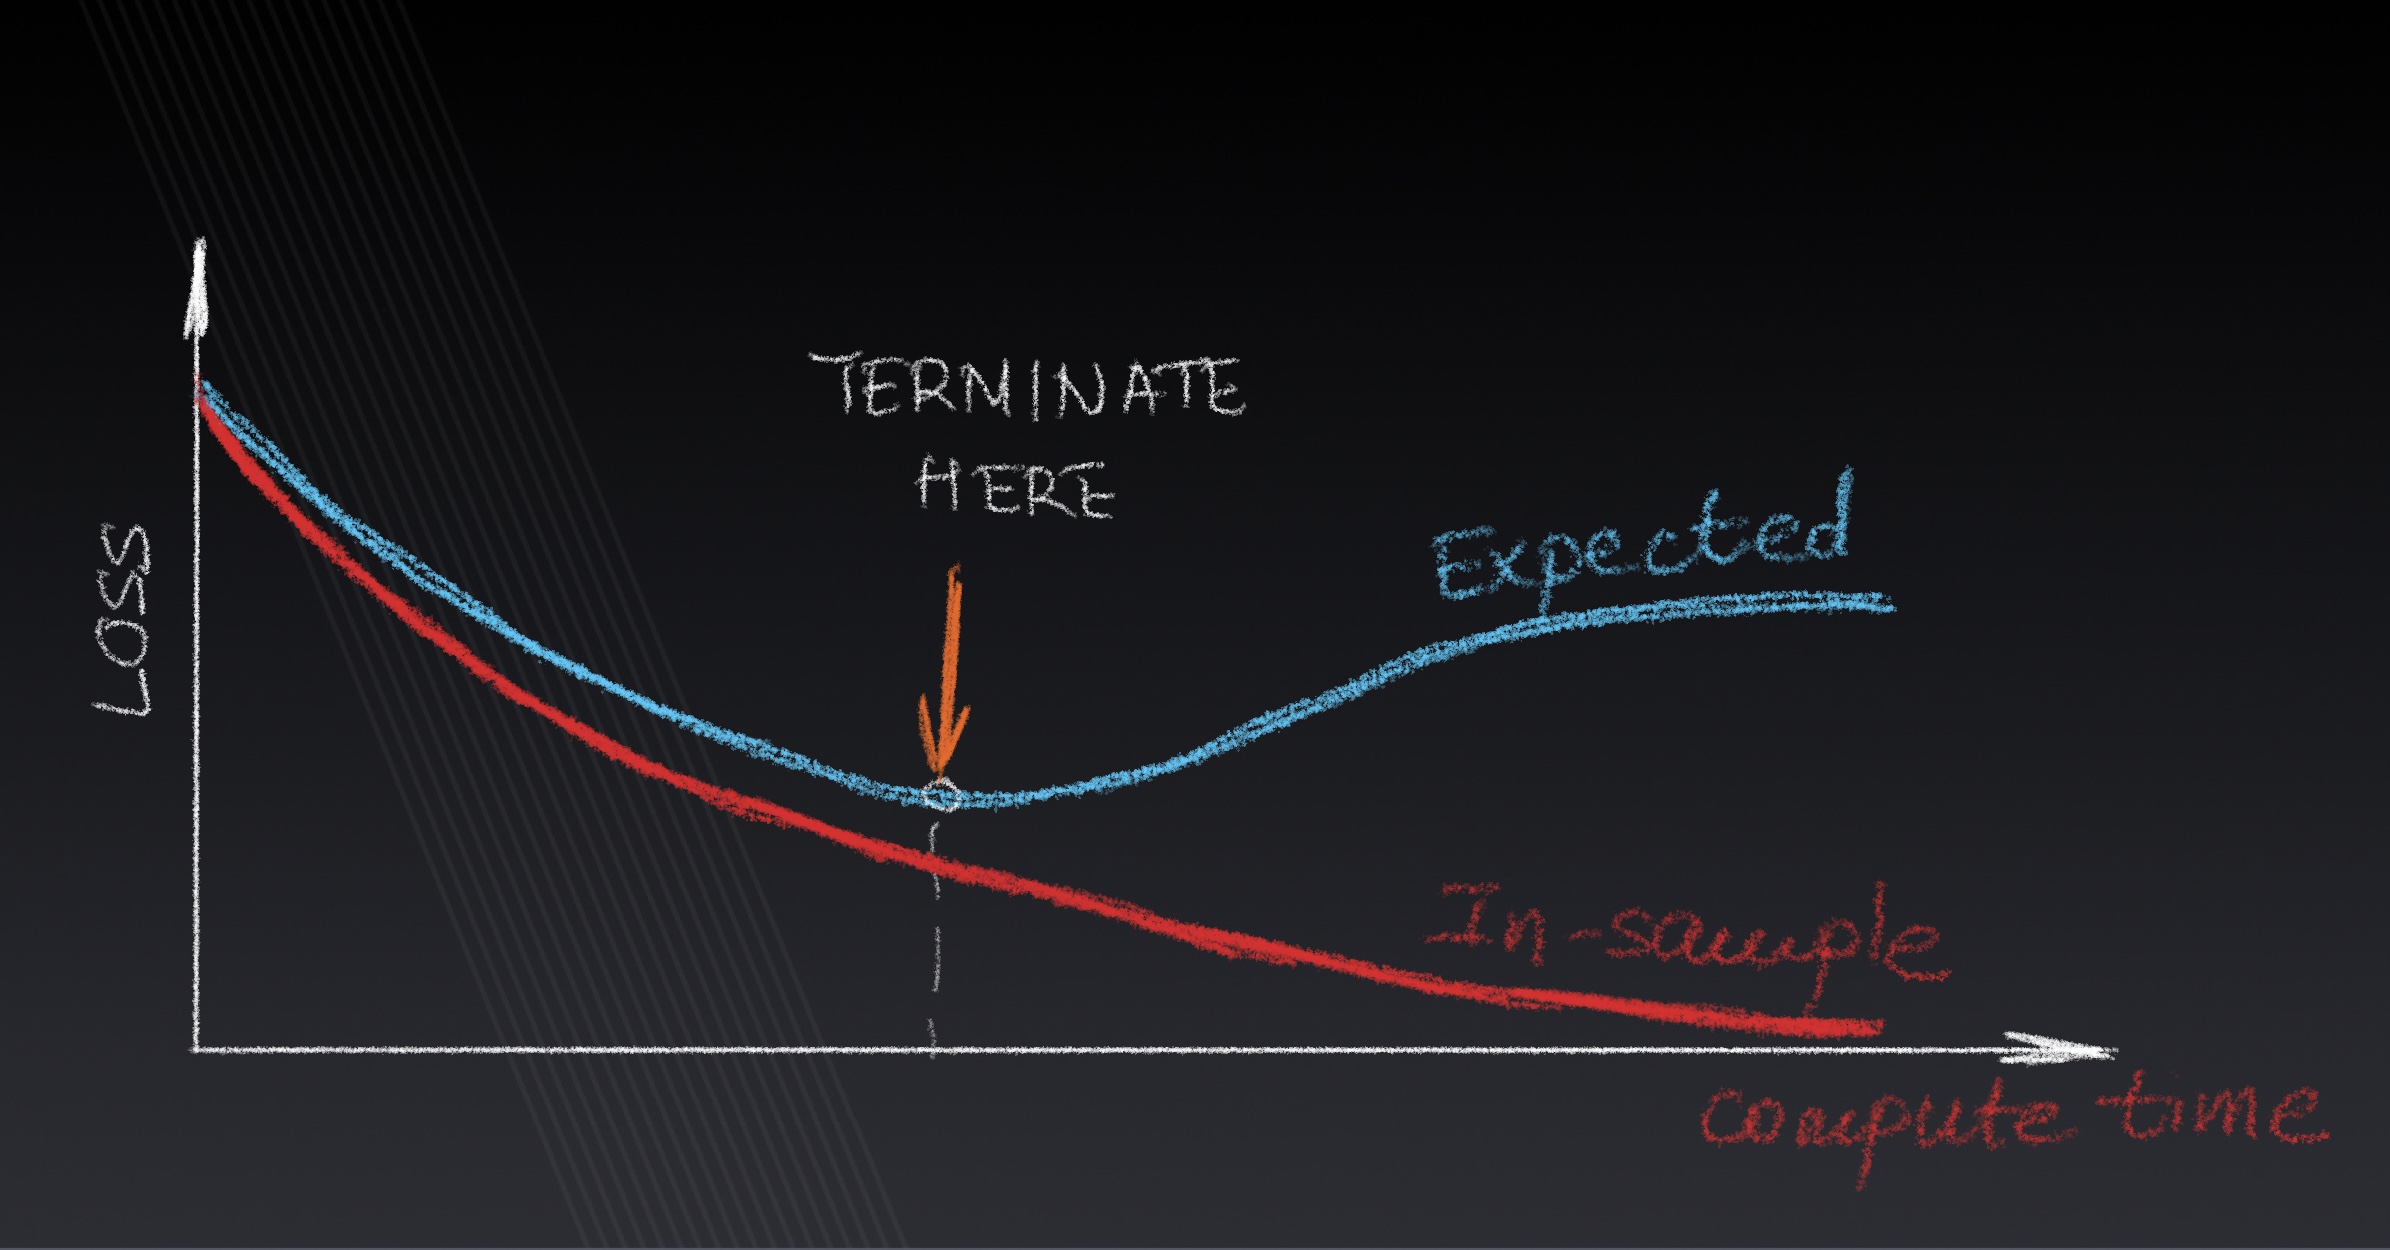 TERMINATE
HERE
Expected
LOSS
In-sample
compute time